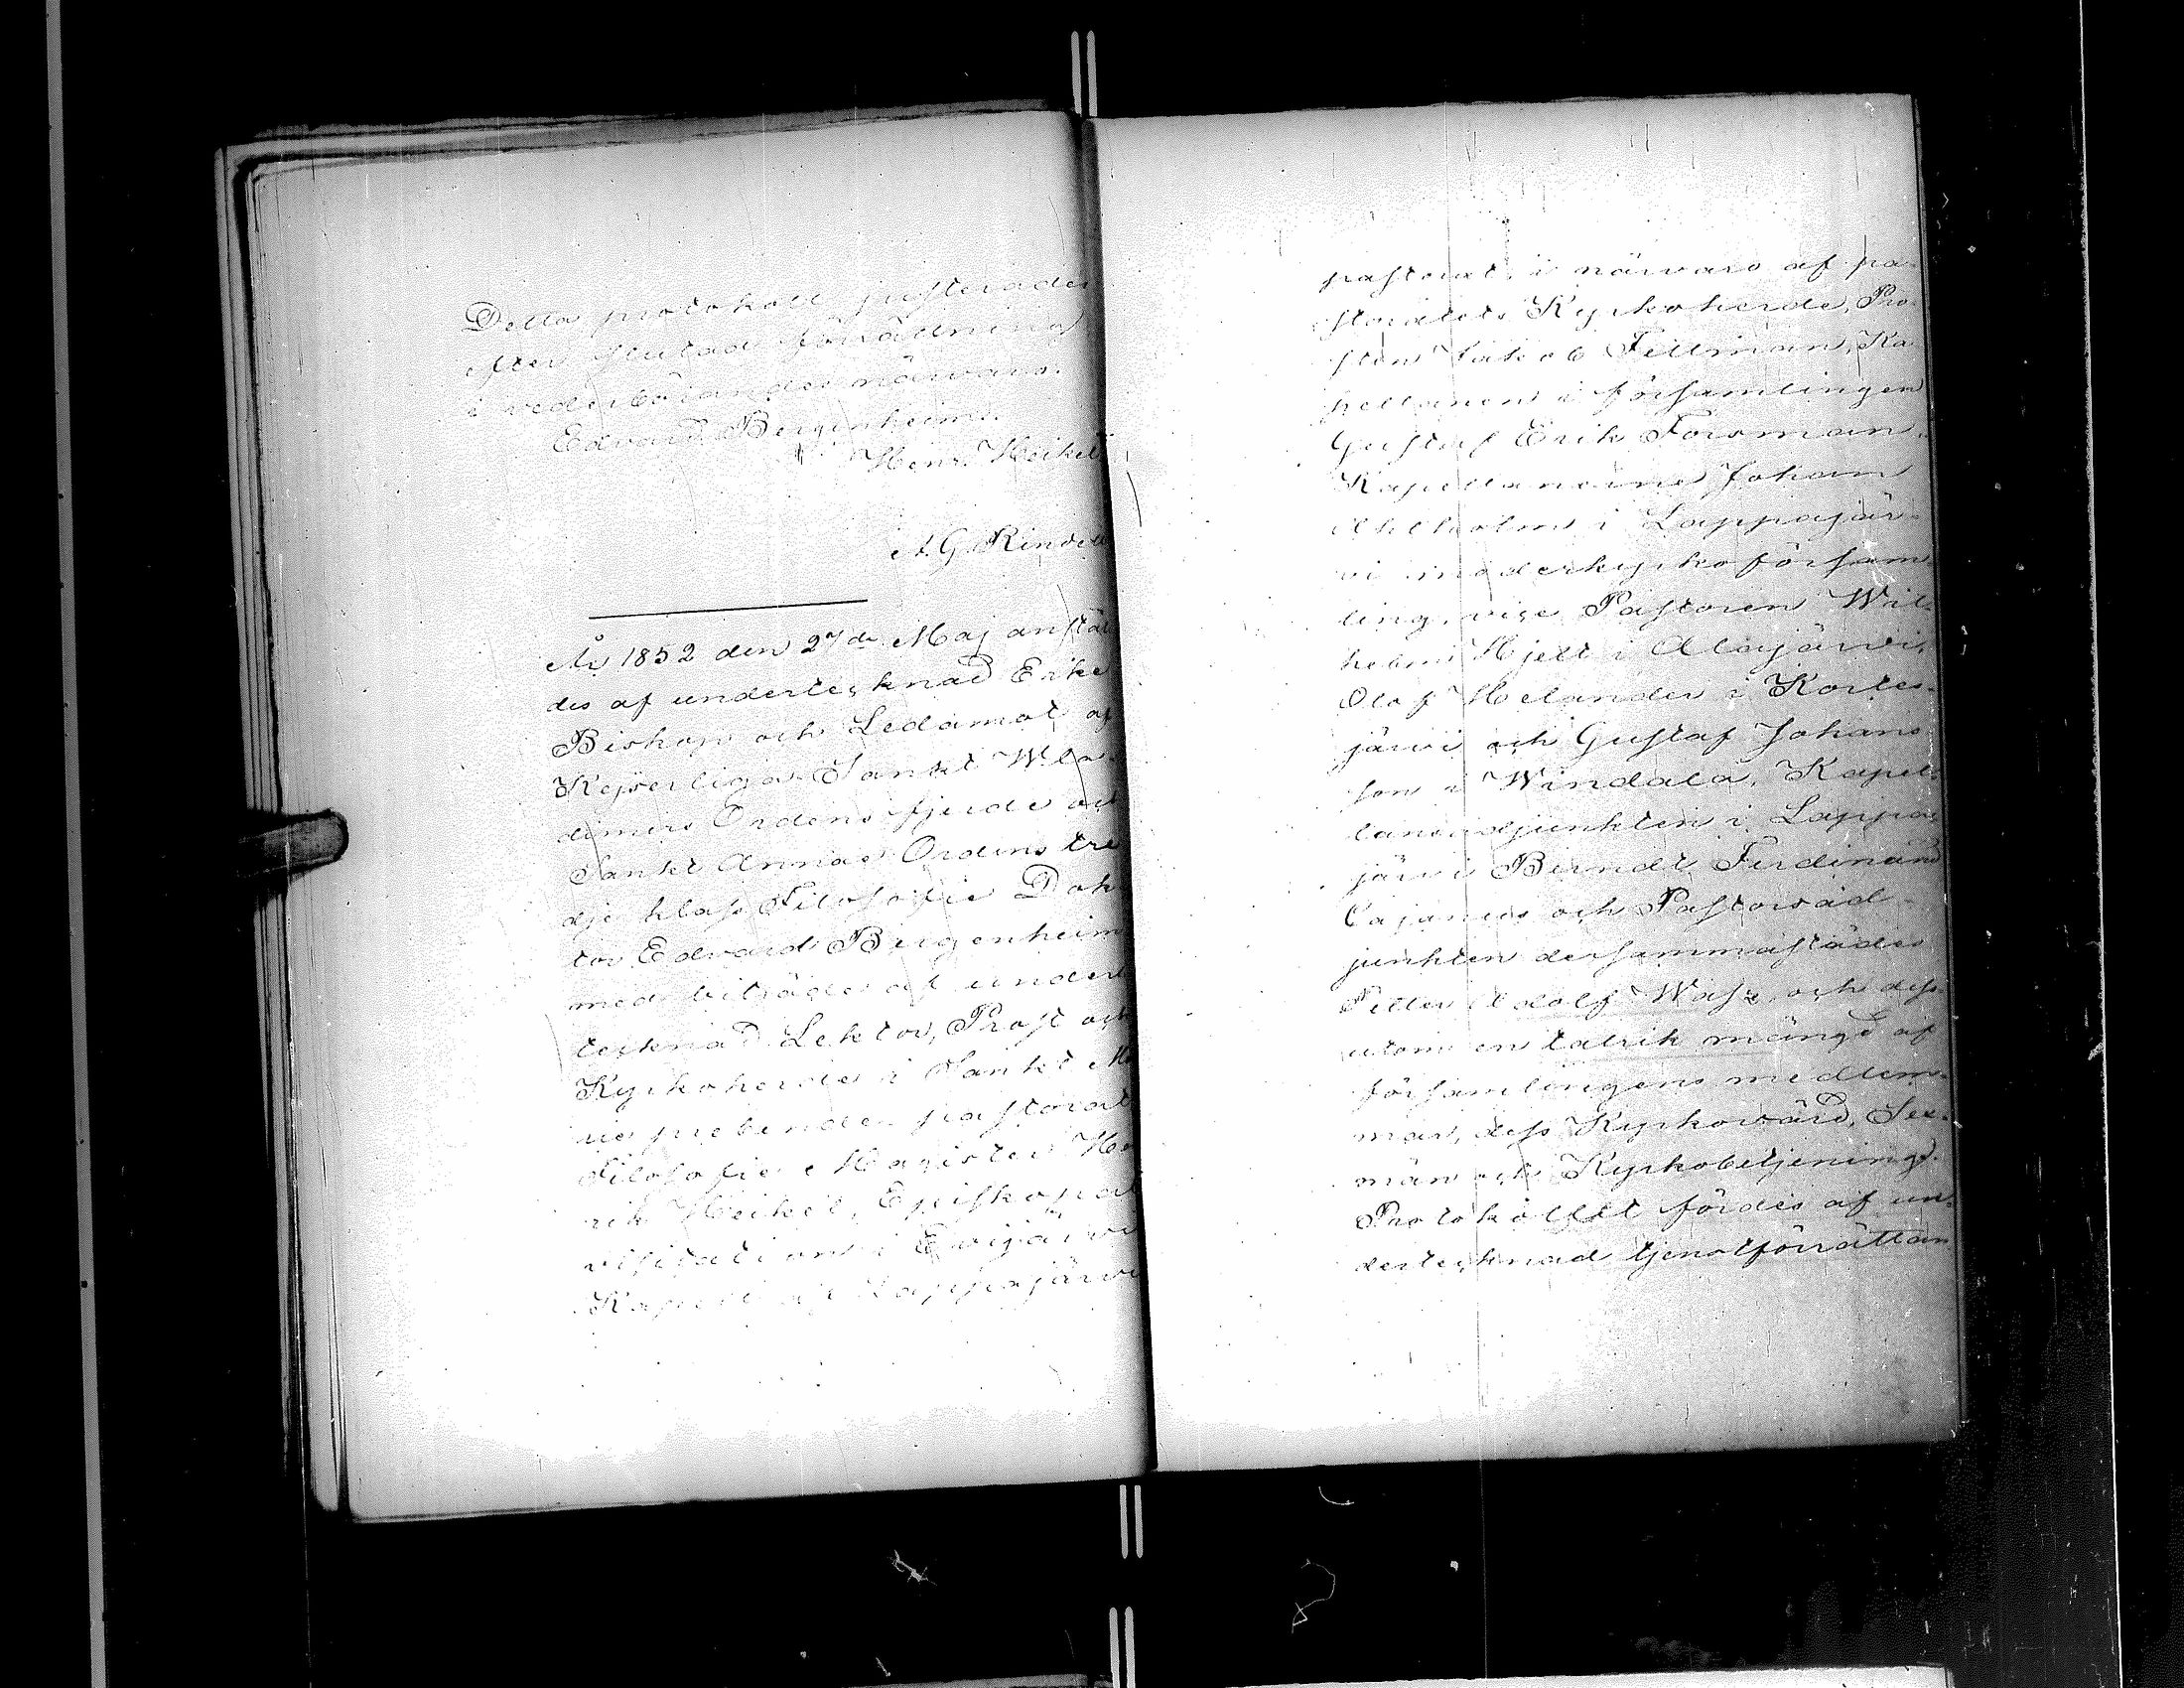 Detta protokoll justerades
efter slutad förrättning
i vederbörandes närvaro.
Edvard Bergenheim.
Henr. Heikel
A. G. Rindell
År 1852 den 27de Maj anstäl
des af undertecknad Erke
Biskop och Ledamot af
Kejserliga Sankt Wla-
dimirs Ordens fjerde och
Sankt Annæ Ordens tre
dje klass Filosofie Dok
tor Edvard Bergenheim
med biträde af under
tecknad Lektor, Prost och
Kyrkoherde i Sankt Ma
riæ prebende pastorat
Filosofie Magister Hen
rik Heikel, Episkopal
visitation i Evijärvi
Kapell af Lappajärvi
pastorat, i närvaro af pa-
storatets Kyrkoherde, Pro-
sten Jakob Fellman, Ka-
pellanen i församlingen
Gustaf Erik Forsman,
Kapellanerne Johan
Ahlholm i Lappajär-
vi moderkyrkoförsam
ling, vice Pastoren Wil-
helm Hjelt i Alajärvi,
Olof Helander i Kortes-
järvi och Gustaf Johans
son i Windala, Kapel-
lansadjunkten i Lappa-
järvi Berndt Ferdinand
Cajanus och Pastorsad-
junkten dersammastädes
Petter Adolf Wasz, och dess-
utom en talrik mängd af
församlingens medlem-
mar, dess Kyrkovärd, Sex-
män och Kyrkobetjening.
Protokollet fördes af un-
dertecknad tjenstförrättan